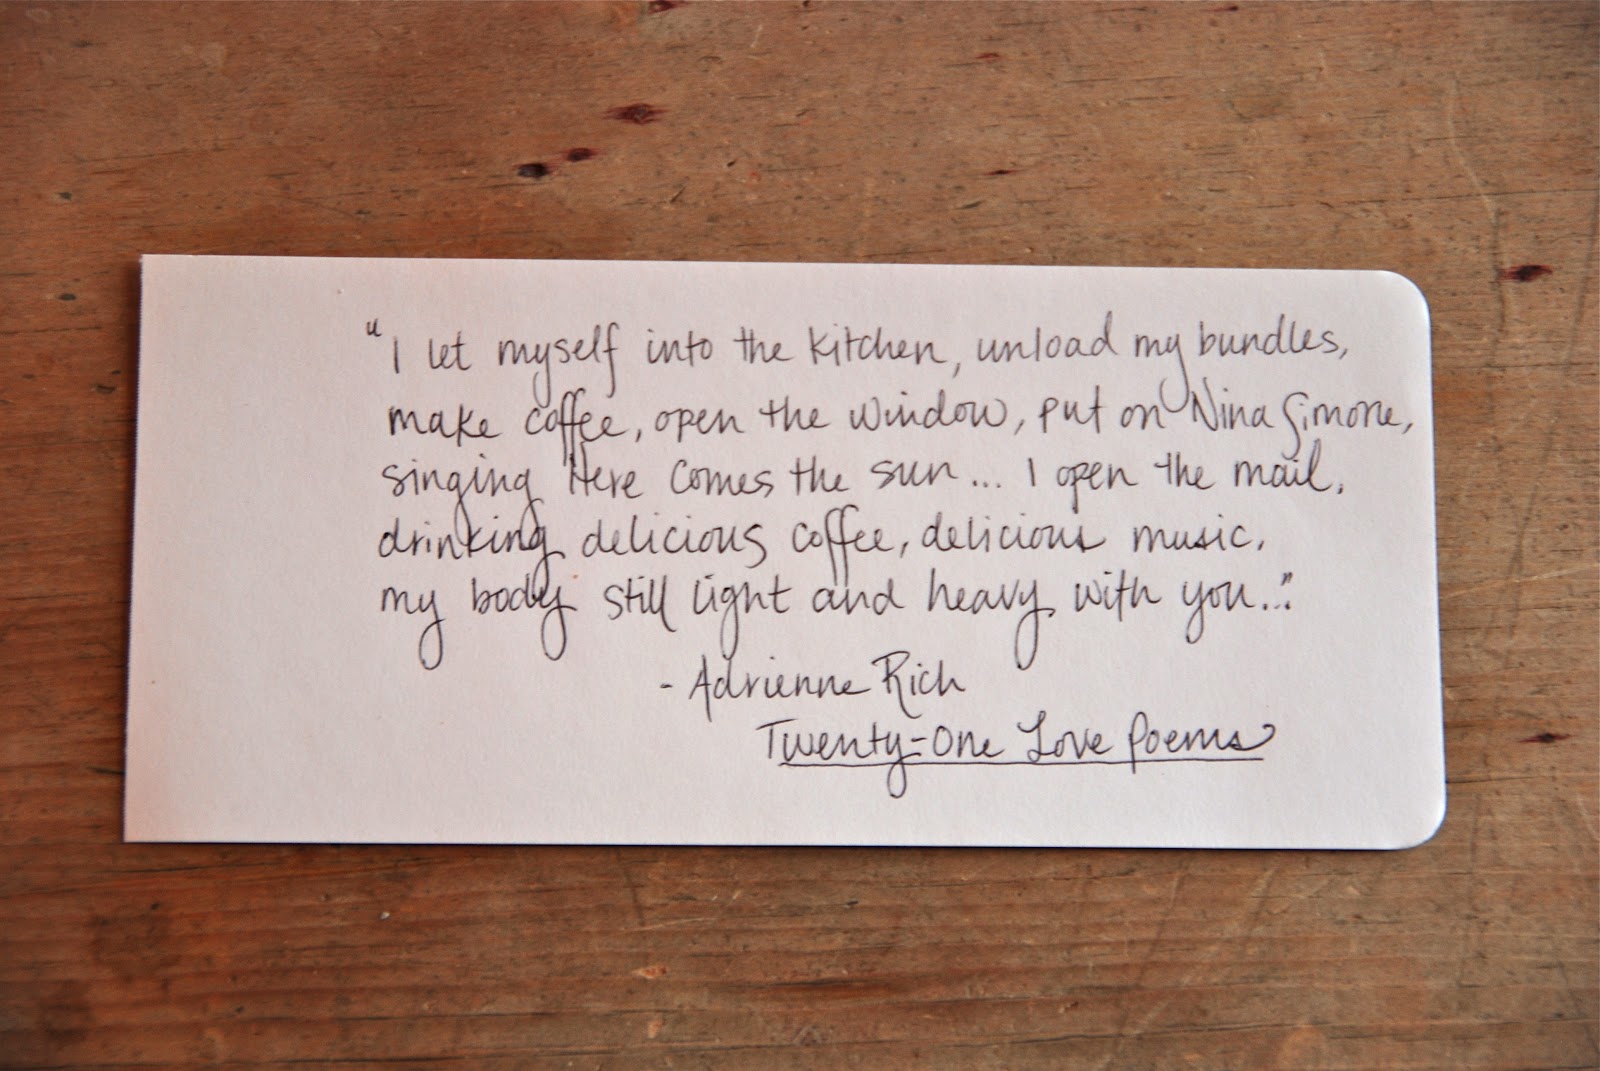 "I let myself into the kitchen, unload my bundles,
make coffee, open the window, put on Nina Simone,
singing Here comes the sun... I open the mail,
drinking delicious coffee, delicious music,
my body still light and heavy with you..."
- Adrienne Rich
Twenty-One Love Poems